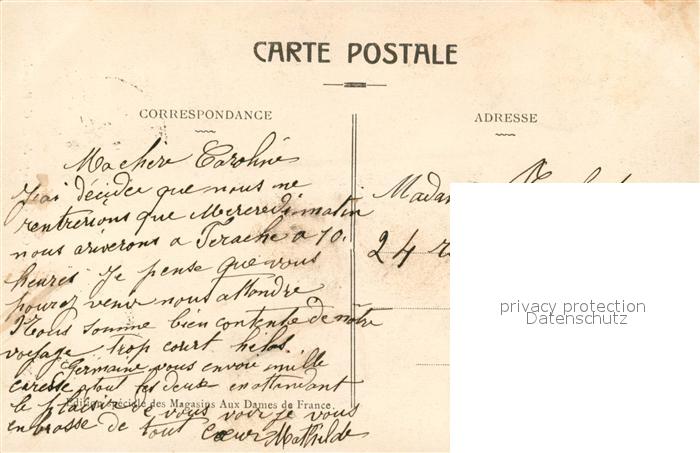 CARTE POSTALE
CORRESPONDANCE
Ma chère Caroline
J'ai décidée que nous ne
rentrerions que Mercredi matin
nous ariverons a Terache a 10.
heures Je pense que vous
pourez venir nous attendre
Nous somme bien contente de nôtre
voyage trop court helas.
Germaine vous envoie mille
caresse a tout les deux en attendant
le plaisir de vous voir je vous
Edition spéciale des Magasins Aux Dames de France.
enbrasse de tout cœur Mathilde
ADRESSE
24
privacy protection
Datenschutz